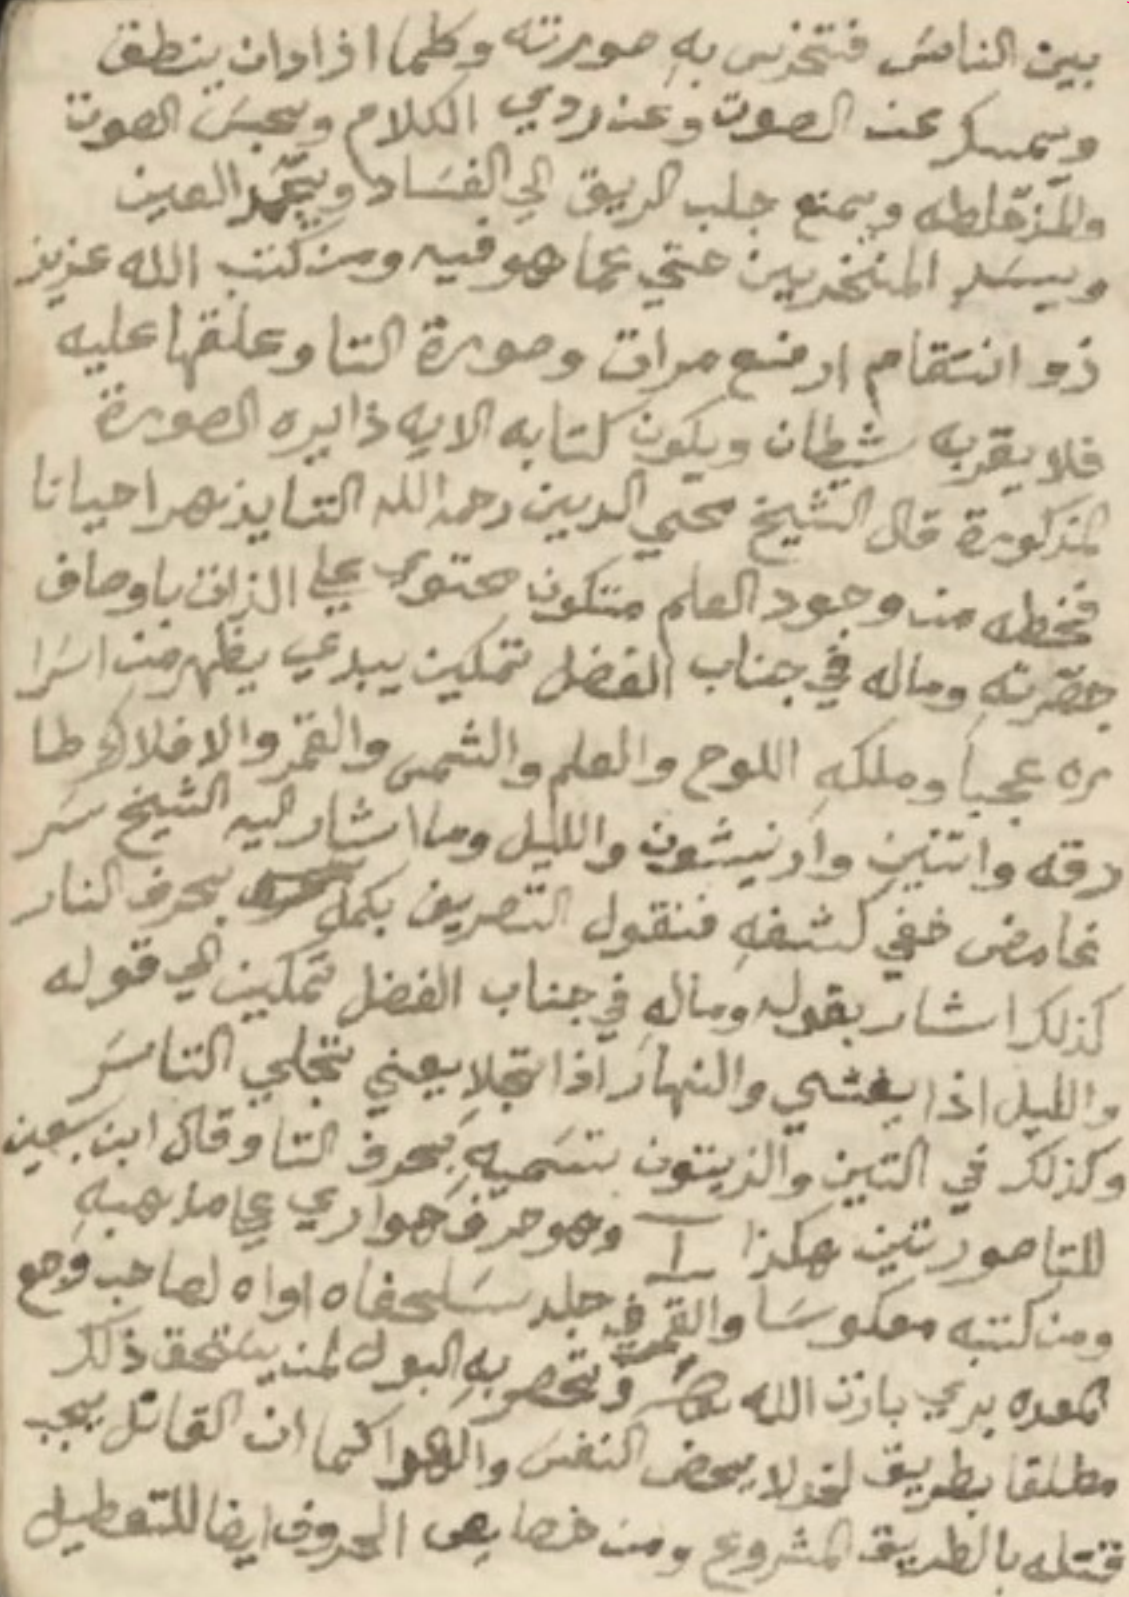 بين الناس فتخرس به صورته وكلما اذا اراد ان ينطق
ويمسكر عن الصوت وعن ردي الكلام ويحبس الصوت
ويمنع جلب الريق الي الفساد العين
ويسد المنخرين حتي عما هو فيه ومن كتب الله عزيز
ذو انتقام اربع مرات وصورة التا وعلقها عليه
فلا يقربه شيطان ويكون كتابه الايه دايره الصورة
المذكورة قال الشيخ محيي الدين رحمه الله التا يذ يظهر احيانا
فخطه من وجود العلم متكون محتوي علي الذات باوصاف
حضرته وماله في جناب الفضل تمكين يبدي يظهر من اسرا
ره عجبا وملكه اللوح والعلم والشمس والقمر والافلاك وطا
رقه واتنين والليل وما اشار اليه الشيخ سر
غامض خفي كشفه فنقول التصريف بكمل بحرف النار
كذلك اشار بقوله وماله في جناب الفضل تمكين الي قوله
والليل اذا يغشي والنهار اذا تجلا يعني تجلي التا سر
وكذلك في التين والزيتون بتسميه بحرف التا وقال ابن سبعين
للتا صورتين هكذا وهو حرف هواري علي مذهبه
ومن كتبه معكوسا والقمر في جلد سلحفاه اواه لصاحب وجع
المعده بري باذن الله وتحصر به البول لمن يستحق ذلك
مطلقا بطريق لغو لا بمحض النفس والهوا كما ان القاتل يجب
قتله بالطريق المشروع ومن خصايص الحروف ايضا للتعطيل